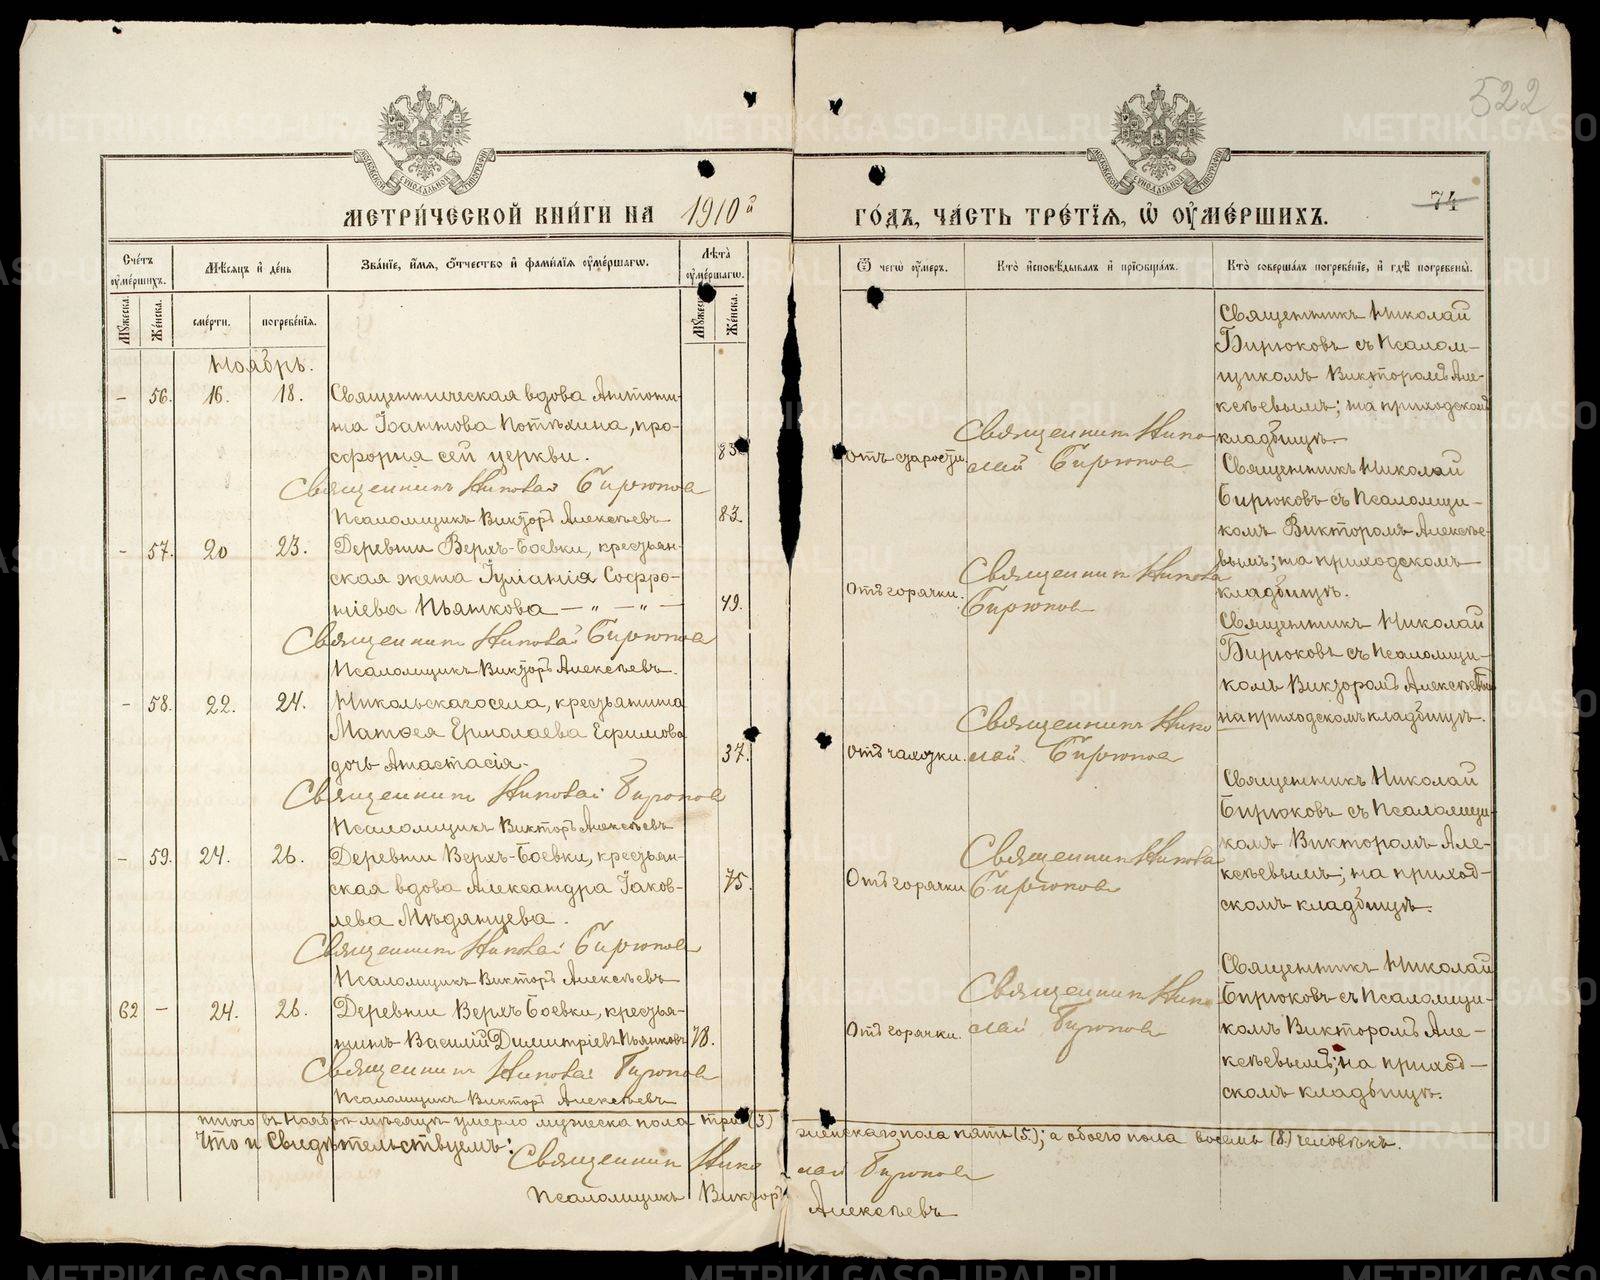 522
74
МЕТРИ́ЧЕСКОЙ КНИ́ГИ НА 1910й ГО́ДЪ, ЧА́СТЬ ТРЕ́ТЇѦ, Ѡ҆ ОУ҆МЕ́РШИХЪ.
Сче́тъ оу҆ме́ршихъ.
Мѣ́сѧцъ и҆ де́нь
Зва́нїе, и҆́мѧ, ѻ҆́тчество и҆ фами́лїѧ оу҆ме́ршагѡ.
Лѣ́та оу҆ме́ршагѡ.
Ѿ чегѡ̀ оу҆́меръ.
Кто̀ и҆сповѣ́дывалъ и҆ прїѡбща́лъ.
Кто̀ соверша́лъ погребе́нїе, и҆ гдѣ̀ погребены̀.
Мꙋ́жеска.
Же́нска.
сме́рти.
погребе́нїѧ.
Мꙋ́жеска.
Же́нска.
Ноябрь.
– 56. 16. 18. Священническая вдова Антони-
на Іоаннова Потѣхина, про-
сфорня сей церкви. 83.
Священникъ Николай Бирюков
Псаломщикъ Викторъ Алексѣевъ 83.
Отъ старости.
Священник Нико-
лай Бирюков
Священникъ Николай
Бирюковъ съ Псалом-
щикомъ Викторомъ Але-
ксѣевымъ; на приходском
кладбищѣ.
– 57. 20 23. Деревни Верхъ-Боевки, крестьян-
ская жена Іуліанія Софро-
ніева Пьянкова – „ – „ – 49.
Священник Николай Бирюков
Псаломщикъ Викторъ Алексѣевъ.
Отъ горячки.
Священник Никола
Бирюков
Священникъ Николай
Бирюковъ съ Псаломщи-
комъ Викторомъ Алексѣе-
вымъ; на приходскомъ
кладбищѣ.
– 58. 22. 24. Никольскаго села, крестьянина
Матѳея Ермолаева Ефимова
дочь Анастасія. 37.
Священник Николай Бирюков
Псаломщикъ Викторъ Алексѣевъ
Отъ чахотки.
Священникъ Нико
лай Бирюков
Священникъ Николай
Бирюковъ съ Псаломщи-
комъ Викторомъ Алексѣевым
на приходскомъ кладбищѣ.
– 59. 24. 26. Деревни Верхъ-Боевки, крестьян-
ская вдова Александра Іаков-
лева Мѣдянцева. 75.
Священник Николай Бирюков
Псаломщикъ Викторъ Алексѣевъ
Отъ горячки
Священник Никола
Бирюков
Священникъ Николай
Бирюковъ съ Псаломщи-
комъ Викторомъ Але-
ксѣевымъ; на приход-
скомъ кладбищѣ.
62 – 24. 26. Деревни Верхъ Боевки, крестья-
нинъ Василій Димитріевъ Пьянковъ 78.
Священник Николай Бирюков
Псаломщикъ Викторъ Алексѣевъ
Отъ горячки.
Священник Нико
лай Бирюков
Священникъ Николай
Бирюковъ съ Псаломщи-
комъ Викторомъ Але-
ксѣевымъ; на приход-
скомъ кладбищѣ.
Итого въ Ноябрѣ мѣсяцѣ умерло мужеска пола три (3) женскаго пола пять (5); а обоего пола восемь (8) человѣкъ.
Что и Свидѣтельствуемъ: Священник Николай Бирюков
Псаломщикъ Викторъ Алексѣевъ